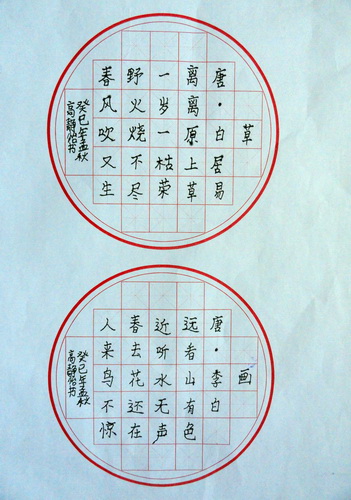 草
唐·白居易
离离原上草
一岁一枯荣
野火烧不尽
春风吹又生
癸巳年孟秋
高静怡书
画
唐·李白
远看山有色
近听水无声
春去花还在
人来鸟不惊
癸巳年孟秋
高静怡书